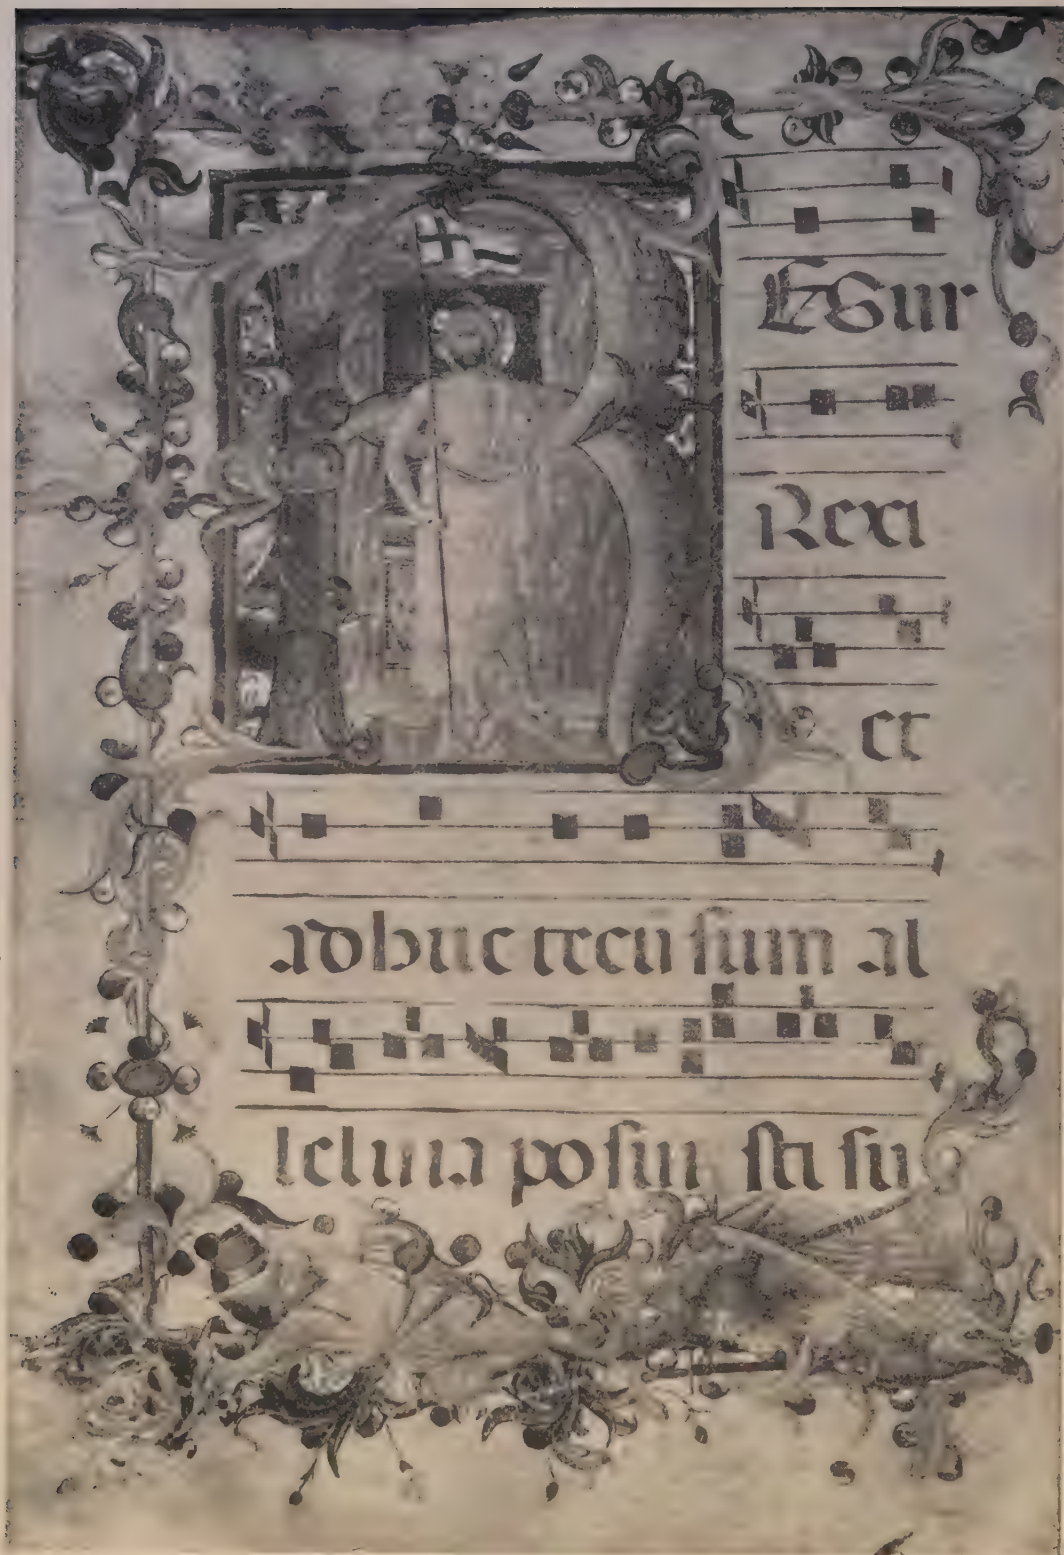 RESur
Rexi
et
adhuc tecū sum al
leluia posui sti su